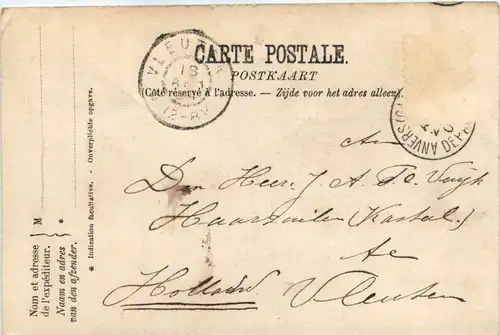 CARTE POSTALE.
POSTKAART
(Côté réservé à l'adresse. — Zijde voor het adres alleen.)
VLEUTEN
18
12-8V
ANVERS DEPART
An
Den Heer J A F C
Haarzuilen (Kasteel)
te
Holland Vleuten
Nom et adresse M
de l'expéditeur.
Naam en adres *
van den afzender.
* Indication facultative. — Onverplichte opgave.